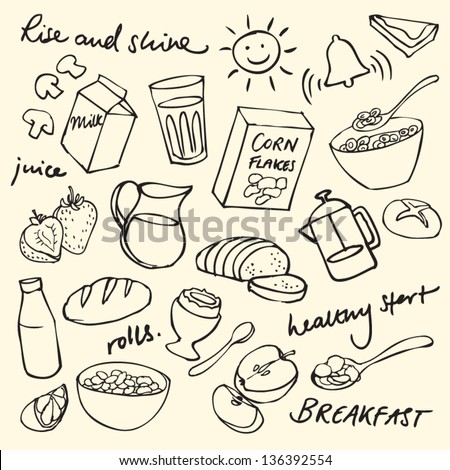 Rise and shine
Milk
juice
CORN
FLAKES
rolls.
healthy start
BREAKFAST
shutterstock
www.shutterstock.com · 136392554